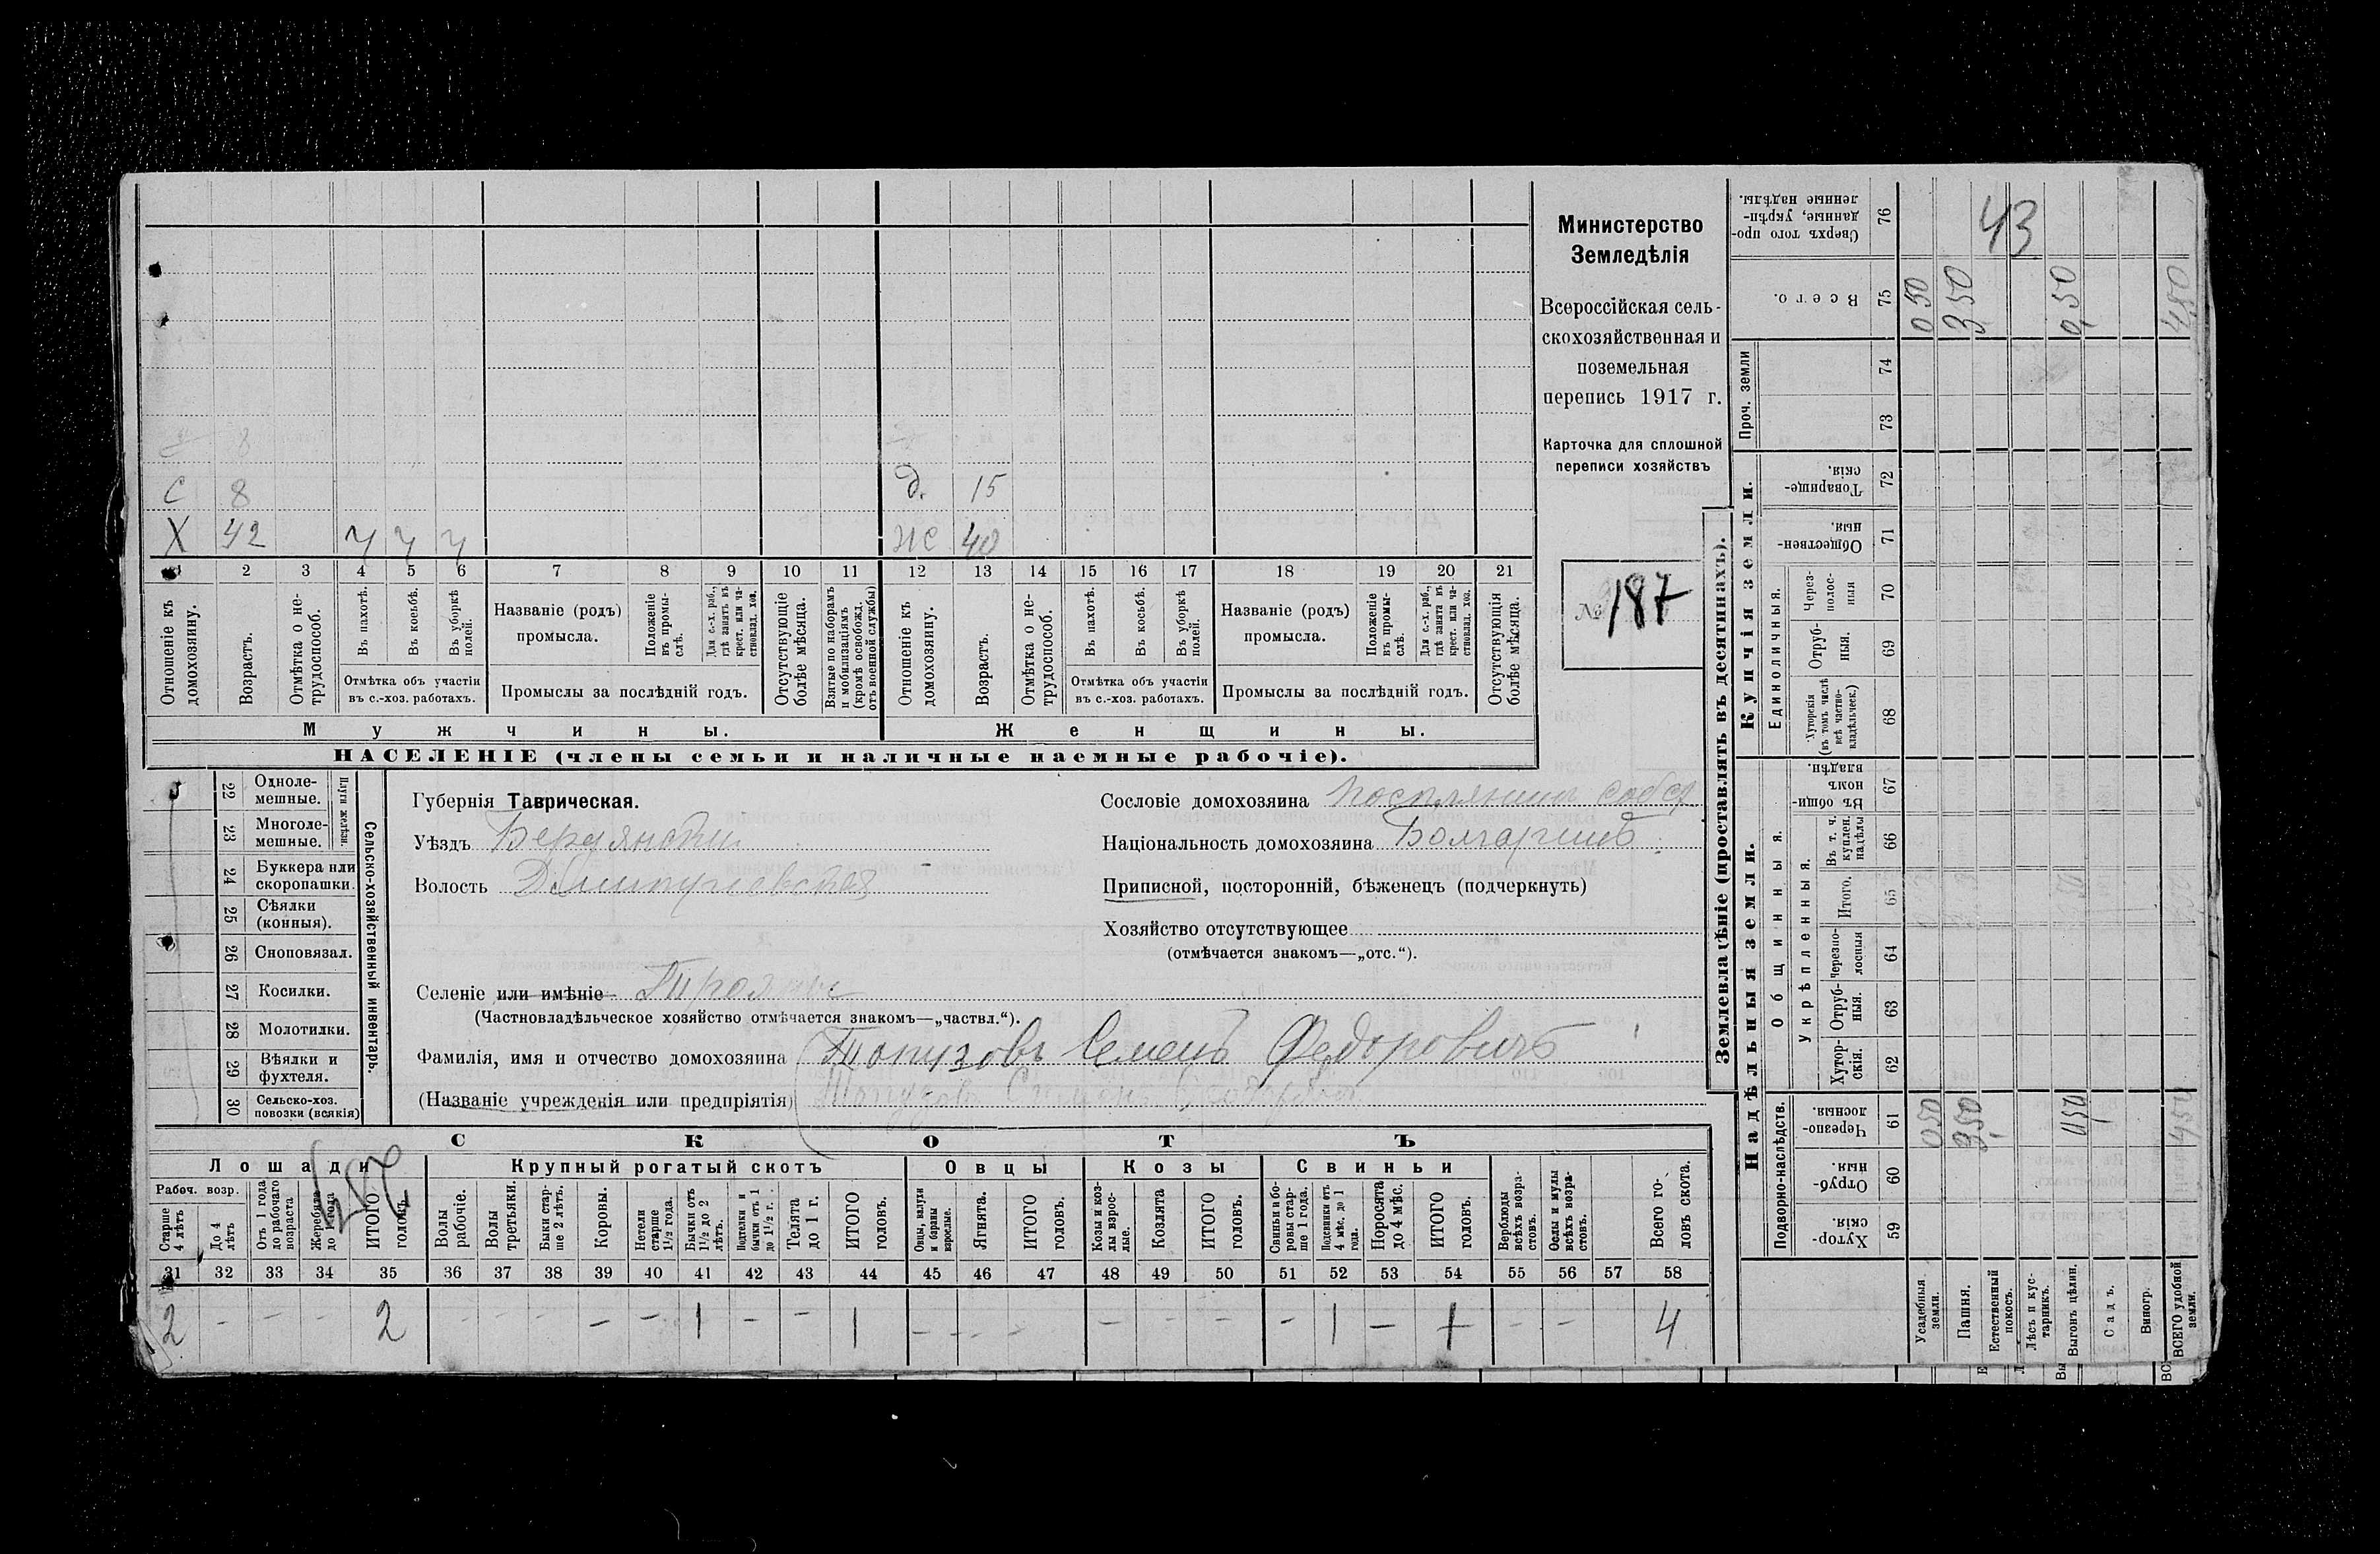 Министерство
Земледѣлія
Всероссійская сель-
скохозяйственная и
поземельная
перепись 1917 г.
Карточка для сплошной
переписи хозяйствъ
№ 187
С 8 Д. 15
Х 42 ч ч ч 40
1 2 3 4 5 6 7 8 9 10 11 12 13 14 15 16 17 18 19 20 21
Отношеніе къ домохозяину.
Возрастъ.
Отмѣтка о не-трудоспособ.
Въ пахотѣ.
Въ косьбѣ.
Въ уборкѣ полей.
Отмѣтка объ участіи
въ с.-хоз. работахъ.
Названіе (родъ)
промысла.
Положеніе въ промы-слѣ.
Для с.-х. раб., гдѣ занятъ въ крест. или ча-стновлад. хоз.
Промыслы за послѣдній годъ.
Отсутствующіе болѣе мѣсяца.
Взятые по наборамъ и мобилизаціямъ (кромѣ освобожд. отъ военной службы)
Отношеніе къ домохозяину.
Возрастъ.
Отмѣтка о не-трудоспособ.
Въ пахотѣ.
Въ косьбѣ.
Въ уборкѣ полей.
Отмѣтка объ участіи
въ с.-хоз. работахъ.
Названіе (родъ)
промысла.
Положеніе въ промы-слѣ.
Для с.-х. раб., гдѣ занята въ крест. или ча-стновлад. хоз.
Промыслы за послѣдній годъ.
Отсутствующія болѣе мѣсяца.
Мужчины. Женщины.
НАСЕЛЕНІЕ (члены семьи и наличные наемные рабочіе).
Сельско-хозяйственный инвентарь.
Плуги желѣзн.
22 Одноле-мешные.
23 Многоле-мешные.
24 Буккера или скоропашки.
25 Сѣялки (конныя).
26 Сноповязал.
27 Косилки.
28 Молотилки.
29 Вѣялки и фухтеля.
30 Сельско-хоз. повозки (всякія)
Губернія Таврическая.
Уѣздъ Бердянскій
Волость
Селеніе или имѣніе Трояны
(Частновладѣльческое хозяйство отмѣчается знакомъ—„частвл.“).
Фамилія, имя и отчество домохозяина Топузовъ Семенъ Федоровичъ
(Названіе учрежденія или предпріятія)
Сословіе домохозяина поселянинъ собст
Національность домохозяина Болгаринъ
Приписной, посторонній, бѣженецъ (подчеркнуть)
Хозяйство отсутствующее
(отмѣчается знакомъ—„отс.“).
СКОТЪ
Лошади Крупный рогатый скотъ Овцы Козы Свиньи
Рабоч. возр.
Старше 4 лѣтъ
До 4 лѣтъ
Отъ 1 года до рабочаго возраста
Жеребята до 1 года
ИТОГО головъ.
Волы рабочіе.
Волы третьяки.
Быки стар-ше 2 лѣтъ.
Коровы.
Нетели старше 1½ года.
Бычки отъ 1½ до 2 лѣтъ.
Подтелки и бычки отъ 1 до 1½ г.
Телята до 1 г.
ИТОГО головъ.
Овцы, валухи и бараны взрослые.
Ягнята.
ИТОГО головъ.
Козы и коз-лы взрос-лые.
Козлята
ИТОГО головъ.
Свиньи и бо-ровы стар-ше 1 года.
Подсвинки отъ 4 мѣс. до 1 года.
Поросята до 4 мѣс.
ИТОГО головъ.
Верблюды всѣхъ возра-стовъ.
Ослы и мулы всѣхъ возра-стовъ.
Всего го-ловъ скота.
31 32 33 34 35 36 37 38 39 40 41 42 43 44 45 46 47 48 49 50 51 52 53 54 55 56 57 58
2 - - - 2 - - - - - 1 - - 1 - - - - - - - 1 - 1 - - 4
Землевладѣніе (проставлять въ десятинахъ).
Надѣльныя земли. Купчія земли. Проч. земли
Подворно-наслѣдств.
Общинныя.
Укрѣпленныя.
Единоличныя.
Хутор-скія. 59
Отруб-ныя. 60
Черезпо-лосныя. 61
Хутор-скія. 62
Отруб-ныя. 63
Черезпо-лосныя 64
Итого. 65
Въ т. ч. куплен. надѣлы 66
Въ общи-номъ владѣн. 67
Хуторскія (въ томъ числѣ всѣ частно-владѣльческ.) 68
Отруб-ныя. 69
Через-полос-ныя 70
Обществен-ныя. 71
Товарище-скія. 72
73
74
Всего. 75
Сверхъ того про-данные, укрѣп-ленные надѣлы. 76
43
Усадебныя земли. 0 50 0 50
Пашня. 3,50 3,50
Естественный покосъ.
Лѣсъ и кус-тарникъ.
Выгонъ цѣлин. 0,50 0,50
Садъ.
Виногр.
ВСЕГО удобной земли. 4,50 4,50